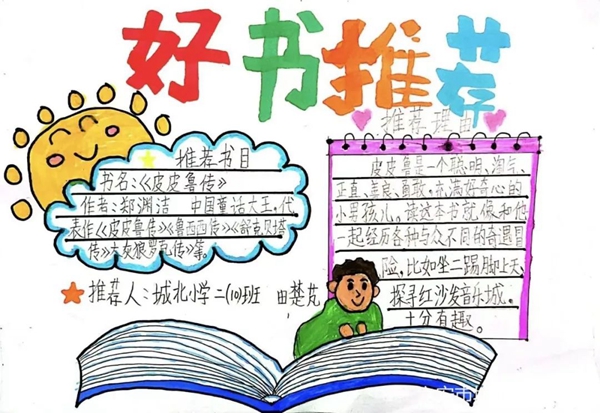 好书推荐
推荐书目
书名:《皮皮鲁传》
作者:郑渊洁 中国童话大王,代
表作《皮皮鲁传》《鲁西西传》《舒克贝塔
传》《大灰狼罗克传》等。
推荐人:城北小学二(10)班 田楚芃
推荐理由
皮皮鲁是一个聪明、淘气、
正直、善良、勇敢,充满好奇心的
小男孩儿。读这本书就像和他
一起经历各种与众不同的奇遇冒
险,比如坐二踢脚上天、
探寻红沙发音乐城。
十分有趣。